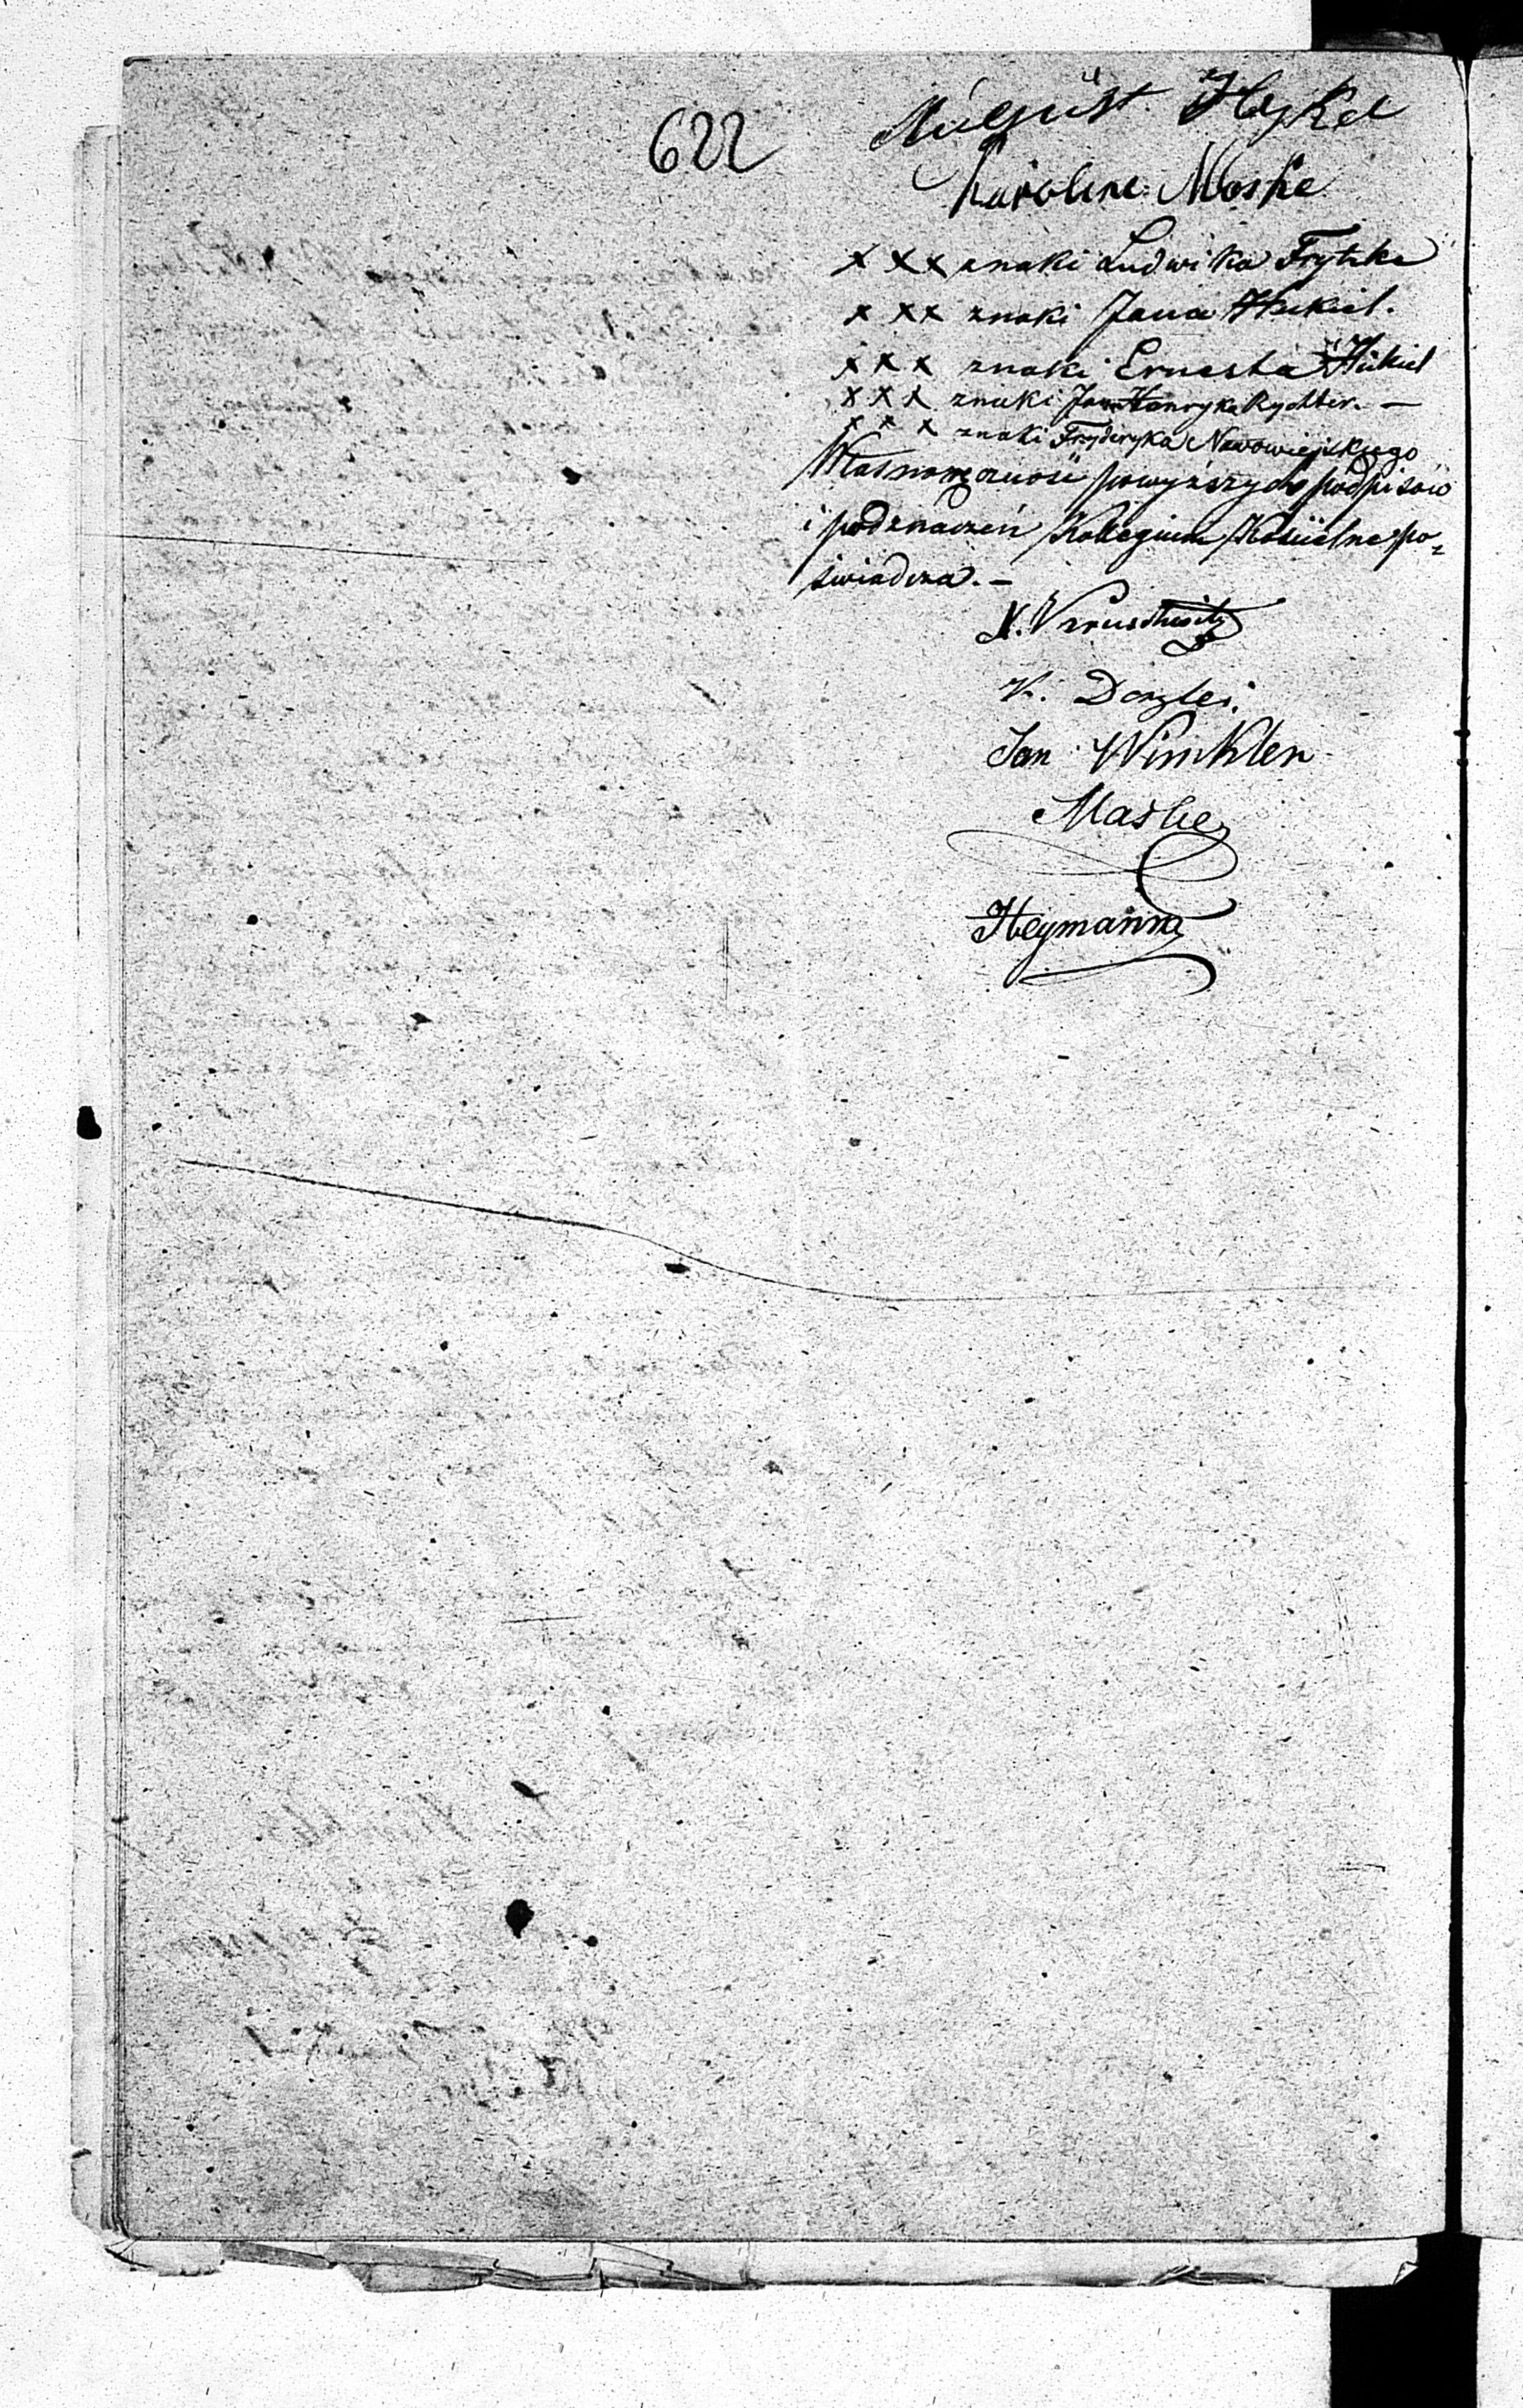 622
August Heykel
Karoline Maske
x x x znaki Ludwika Frytzke
x x x znaki Jana Hekiel.
x x x znaki Ernesta Hükiel
x x x znaki Jana Henryka Rychter. —
x x x znaki Fryderyka Nawowiejskiego
Własnoręczność powyższych podpisów
i podznaczeń Kollegium Kościelne po-
świadcza. —
K.
Jan Winkler
Maske
Heymann